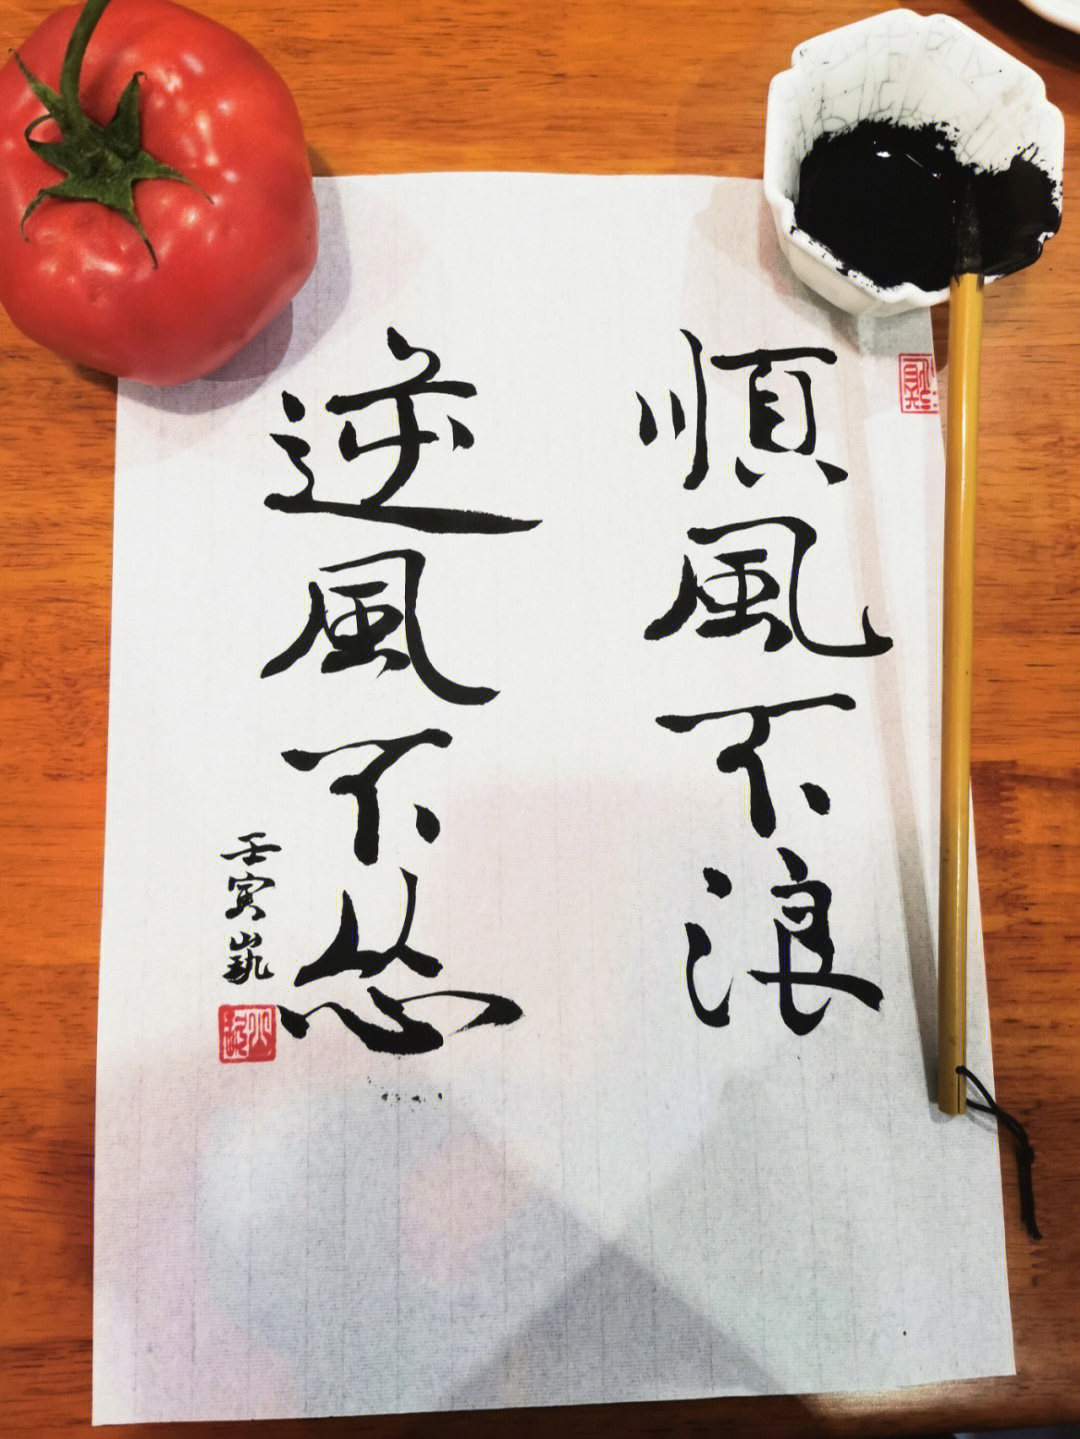 順風不浪
逆風不怂
壬寅